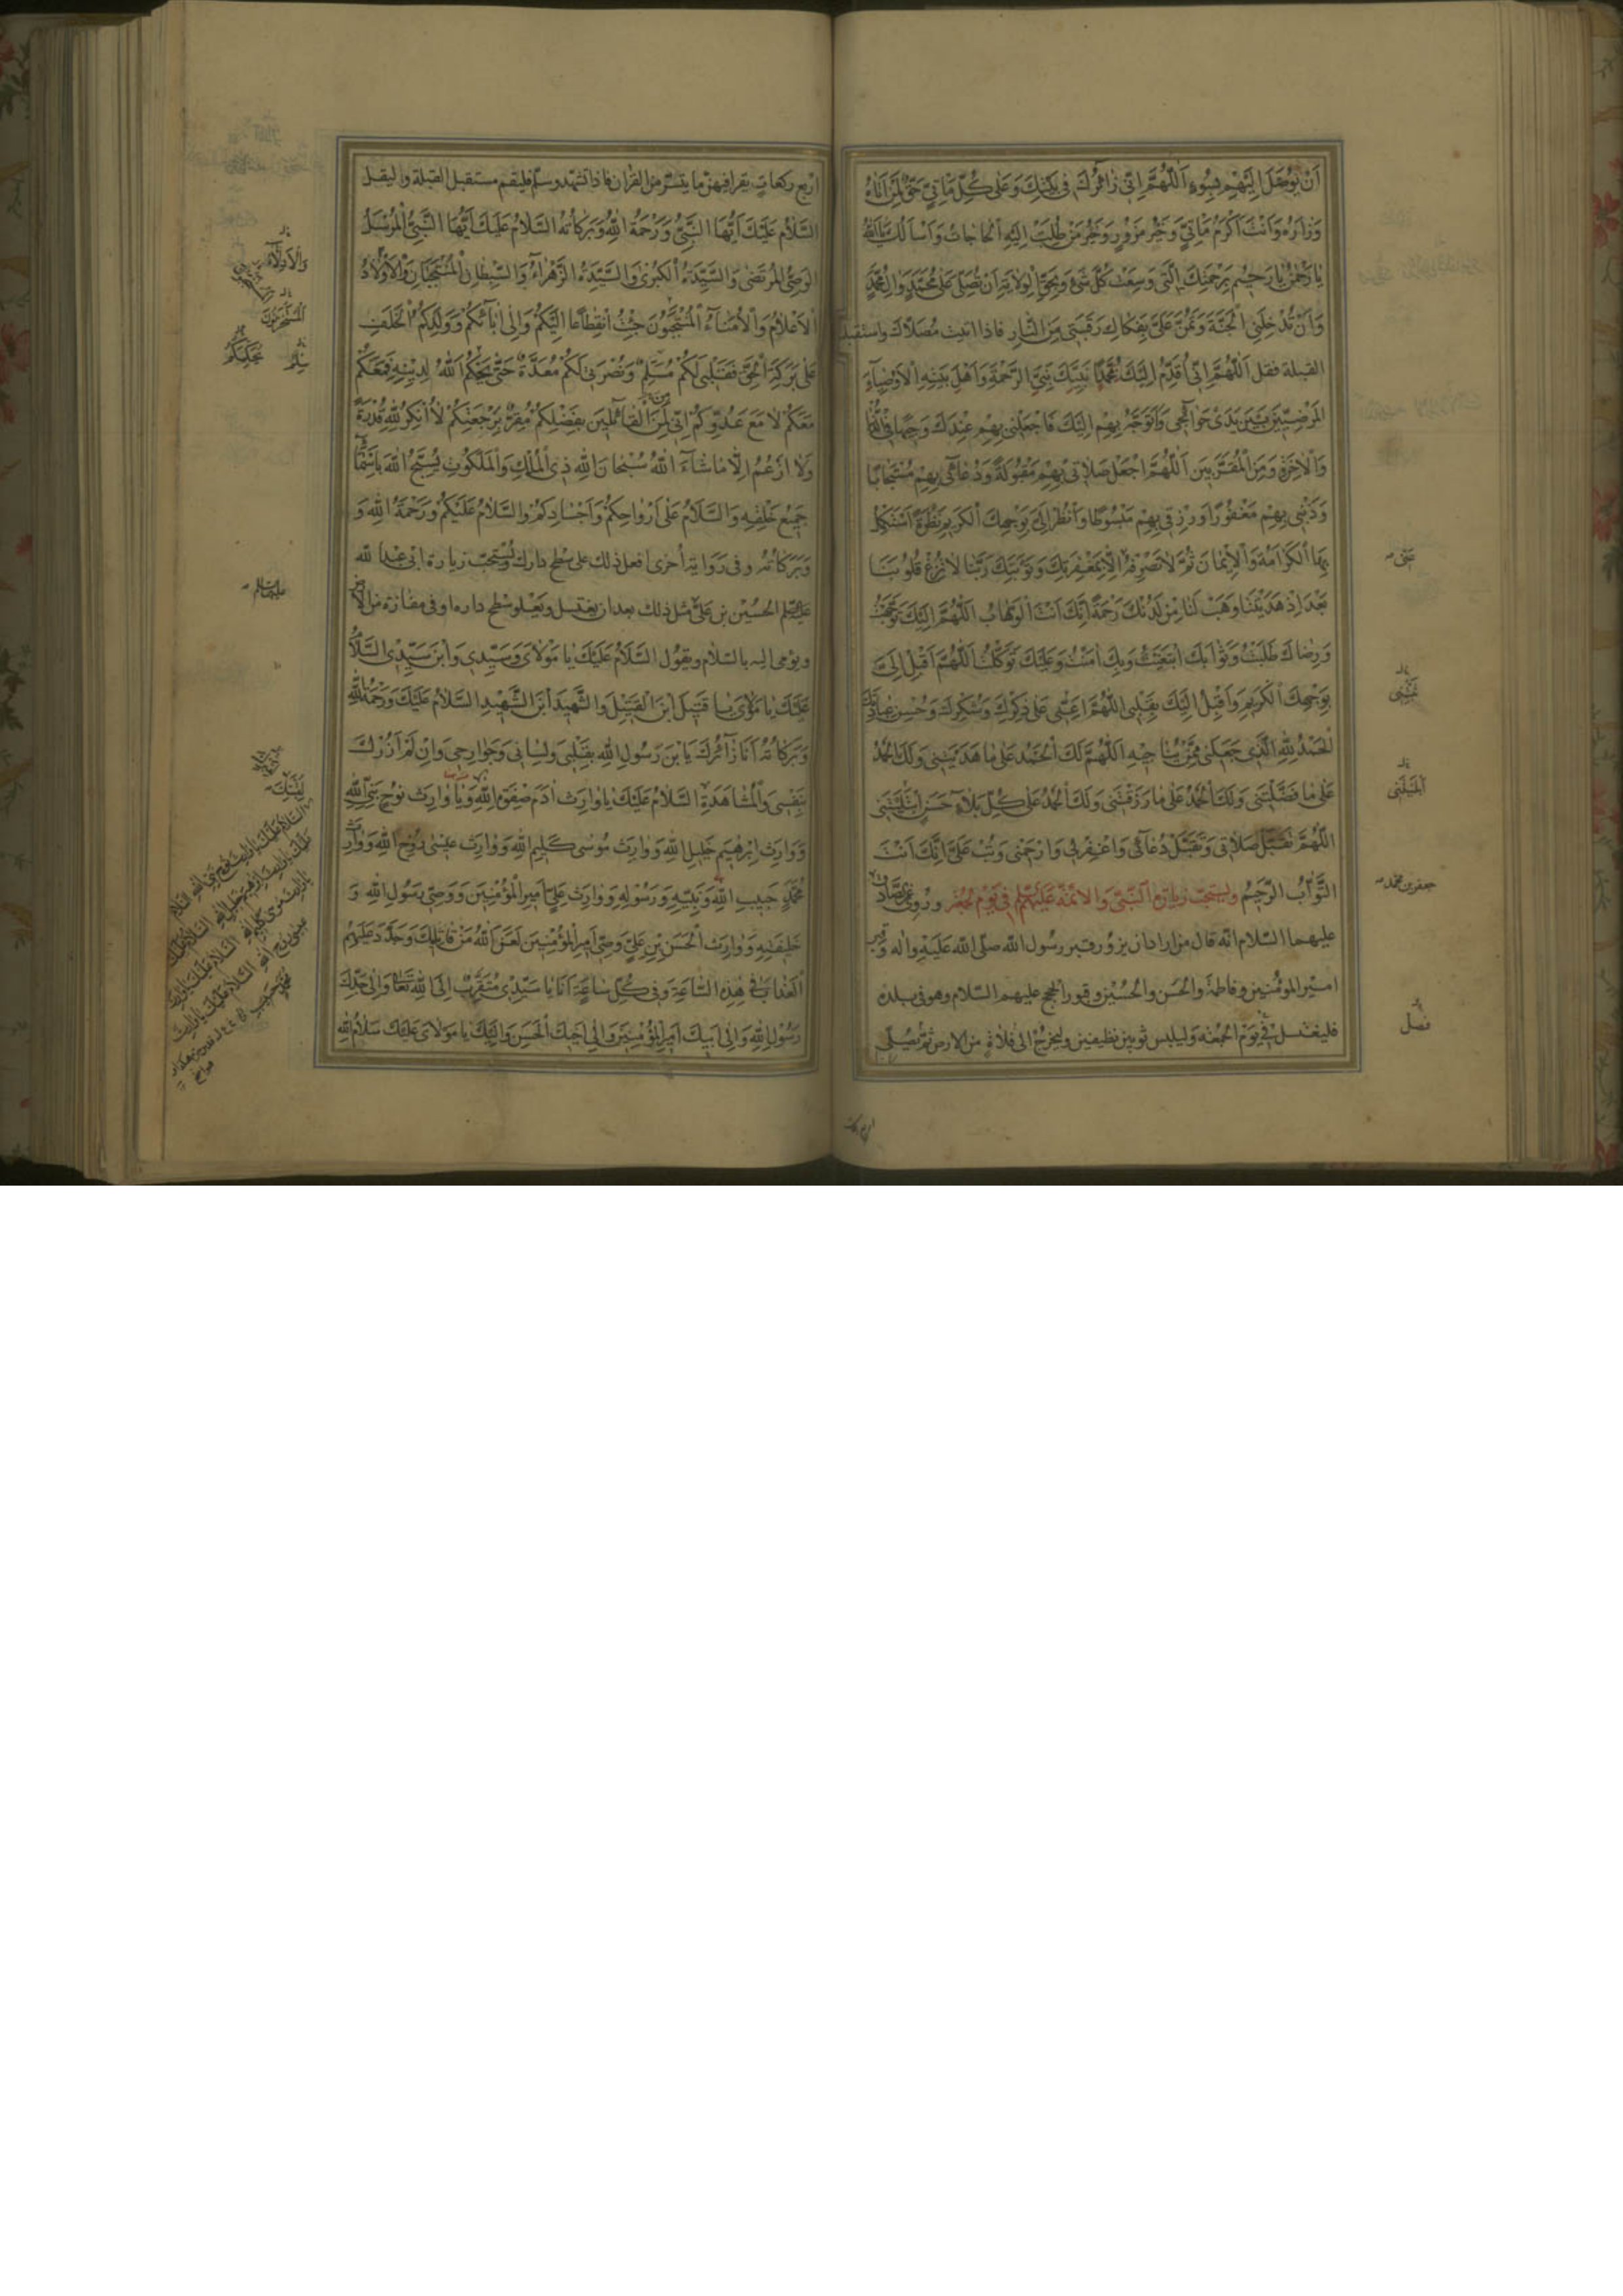 أَنْ يُوَجَّلَ إِلَيْهِمْ بِسُوءٍ اَللّٰهُمَّ اِنّي زٰائِرُكَ في بَيْتِكَ وَعَلىٰ كُلِّ مَأْتِيٍّ حَقٌّ لِمَنْ اَتٰاهُ
وَزٰارَهُ وَاَنْتَ اَكْرَمُ مَأْتِيٍّ وَخَيْرُ مَزُورٍ وَخَيْرُ مَنْ طُلِبَتْ اِلَيْهِ الْحٰاجٰاتُ وَاَسْاَلُكَ يٰا اَللّٰهُ
يٰا رَحْمٰنُ يٰا رَحيمُ بِرَحْمَتِكَ الَّتي وَسِعَتْ كُلَّ شَيْءٍ وَبِحَقِّ الْوِلاٰيَةِ اَنْ تُصَلِّيَ عَلىٰ مُحَمَّدٍ وَاٰلِ مُحَمَّدٍ
وَاَنْ تُدْخِلَنِي الْجَنَّةَ وَتَمُنَّ عَلَيَّ بِفَكٰاكِ رَقَبَتي مِنَ النّٰارِ فاذا اتيت مُصَلاّك واستقبلت
القبلة فقل اَللّٰهُمَّ اِنّي اُقَدِّمُ اِلَيْكَ مُحَمَّدًا نَبِيَّكَ نَبِيَّ الرَّحْمَةِ وَاَهْلَ بَيْتِهِ الْاَوْصِيٰاءَ
الْمَرْضِيّينَ بَيْنَ يَدَيْ حَوٰائِجي وَاَتَوَجَّهُ بِهِمْ اِلَيْكَ فَاجْعَلْني بِهِمْ عِنْدَكَ وَجيهًا فِي الدُّنْيٰا
وَالْاٰخِرَةِ وَمِنَ الْمُقَرَّبينَ اَللّٰهُمَّ اجْعَلْ صَلاٰتي بِهِمْ مَقْبُولَةً وَدُعٰائي بِهِمْ مُسْتَجٰابًا
وَذَنْبي بِهِمْ مَغْفُورًا وَرِزْقي بِهِمْ مَبْسُوطًا وَانْظُرْ اِلَيَّ بِوَجْهِكَ الْكَريمِ نَظْرَةً اَسْتَكْمِلُ
بِهَا الْكَرٰامَةَ وَالْاِيمٰانَ ثُمَّ لاٰ تَصْرِفْهُ اِلاّٰ بِمَغْفِرَتِكَ وَتَوْبَتِكَ رَبَّنٰا لاٰ تُزِغْ قُلُوبَنٰا
بَعْدَ اِذْ هَدَيْتَنٰا وَهَبْ لَنٰا مِنْ لَدُنْكَ رَحْمَةً اِنَّكَ اَنْتَ الْوَهّٰابُ اَللّٰهُمَّ اِلَيْكَ تَوَجَّهْتُ
وَرِضٰاكَ طَلَبْتُ وَثَوٰابَكَ ابْتَغَيْتُ وَبِكَ اٰمَنْتُ وَعَلَيْكَ تَوَكَّلْتُ اَللّٰهُمَّ اَقْبِلْ اِلَيَّ
بِوَجْهِكَ الْكَريمِ وَاَقْبِلْ اِلَيْكَ بِقَلْبي اَللّٰهُمَّ اَعِنّي عَلىٰ ذِكْرِكَ وَشُكْرِكَ وَحُسْنِ عِبٰادَتِكَ
اَلْحَمْدُ لِلّٰهِ الَّذي جَعَلَني مِمَّنْ يُنٰاجيهِ اَللّٰهُمَّ لَكَ الْحَمْدُ عَلىٰ مٰا هَدَيْتَني وَلَكَ الْحَمْدُ
عَلىٰ مٰا فَضَّلْتَني وَلَكَ الْحَمْدُ عَلىٰ مٰا رَزَقْتَني وَلَكَ الْحَمْدُ عَلىٰ كُلِّ بَلاٰءٍ حَسَنٍ ابْتَلَيْتَني
اَللّٰهُمَّ تَقَبَّلْ صَلاٰتي وَتَقَبَّلْ دُعٰائي وَاغْفِرْ لي وَارْحَمْني وَتُبْ عَلَيَّ اِنَّكَ اَنْتَ
التَّوّٰابُ الرَّحيمُ ويستحبّ زيارة النّبيّ والائمّة عليهم في يوم الجمعة وروي عن الصّادق
عليهما السّلام انّه قال من اراد ان يزور قبر رسول اللّه صلّى اللّه عليه واٰله وقبر
امير المؤمنين وفاطمة والحسن والحسين وقبور الحجج عليهم السّلام وهو في بلده
فليغتسل في يوم الجمعة وليلبس ثوبين نظيفين وليخرج الى فلاة من الارض ثمّ يصلّي
عنّى
تمنّني
ابليتني
جعفر بن محمد
فصل
اربع ركعات
اربع ركعات يقرا فيهنّ ما يتسّر من القرآن فاذا تشهّد وسلّم فليقم مستقبل القبلة وليقل
اَلسَّلاٰمُ عَلَيْكَ اَيُّهَا النَّبِيُّ وَرَحْمَةُ اللّٰهِ وَبَرَكٰاتُهُ السَّلاٰمُ عَلَيْكَ اَيُّهَا النَّبِيُّ الْمُرْسَلُ
الْوَصِيُّ الْمُرْتَضىٰ وَالسَّيِّدَةُ الْكُبْرىٰ وَالسَّيِّدَةُ الزَّهْرٰاءُ وَالسِّبْطٰانِ الْمُنْتَجَبٰانِ وَالْاَوْلاٰدُ
الْاَعْلاٰمُ وَالْاُمَنٰاءُ الْمُنْتَجَبُونَ جِئْتُ انْقِطٰاعًا اِلَيْكُمْ وَاِلىٰ اٰبٰائِكُمْ وَوَلَدِكُمُ الْخَلَفِ
عَلىٰ بَرَكَةِ الْحَقِّ فَقَلْبي لَكُمْ مُسَلِّمٌ وَنُصْرَتي لَكُمْ مُعَدَّةٌ حَتّىٰ يَحْكُمَ اللّٰهُ لِدينِهِ فَمَعَكُمْ
مَعَكُمْ لاٰ مَعَ عَدُوِّكُمْ اِنّي لَمِنَ الْقٰائِلينَ بِفَضْلِكُمْ مُقِرٌّ بِرَجْعَتِكُمْ لاٰ اُنْكِرُ لِلّٰهِ قُدْرَةً
وَلاٰ اَزْعُمُ اِلاّٰ مٰا شٰاءَ اللّٰهُ سُبْحٰانَ اللّٰهِ ذِي الْمُلْكِ وَالْمَلَكُوتِ يُسَبِّحُ اللّٰهَ بِاَسْمٰائِهِ
جَميعُ خَلْقِهِ وَالسَّلاٰمُ عَلىٰ اَرْوٰاحِكُمْ وَاَجْسٰادِكُمْ وَالسَّلاٰمُ عَلَيْكُمْ وَرَحْمَةُ اللّٰهِ وَ
وَبَرَكٰاتُهُ وفي رواية أخرى افعل ذلك على سطح دارك وتستحبّ زيارة ابي عبد اللّه
الحسين بن عليّ مثل ذلك بعد ان يغتسل ويعلو سطح داره او في مفازة من الارض
ويؤمي اليه بالسّلام ويقول اَلسَّلاٰمُ عَلَيْكَ يٰا مَوْلاٰيَ وَسَيِّدي وَابْنَ سَيِّدي السَّلاٰمُ
عَلَيْكَ يٰا مَوْلاٰيَ يٰا قَتيلَ ابْنَ الْقَتيلِ وَالشَّهيدَ ابْنَ الشَّهيدِ السَّلاٰمُ عَلَيْكَ وَرَحْمَةُ اللّٰهِ
وَبَرَكٰاتُهُ اَنَا زٰائِرُكَ يَا بْنَ رَسُولِ اللّٰهِ بِقَلْبي وَلِسٰاني وَجَوٰارِحي وَاِنْ لَمْ اَزُرْكَ
بِنَفْسي وَالْمُشٰاهَدَةِ السَّلاٰمُ عَلَيْكَ يٰا وٰارِثَ اٰدَمَ صِفْوَةِ اللّٰهِ وَيٰا وٰارِثَ نُوحٍ نَبِيِّ اللّٰهِ
وَوٰارِثَ اِبْرٰهيمَ خَليلِ اللّٰهِ وَوٰارِثَ مُوسىٰ كَليمِ اللّٰهِ وَوٰارِثَ عيسىٰ رُوحِ اللّٰهِ وَوٰارِثَ
مُحَمَّدٍ حَبيبِ اللّٰهِ وَنَبِيِّهِ وَرَسُولِهِ وَوٰارِثَ عَلِيٍّ اَميرِ الْمُؤْمِنينَ وَوَصِيِّ رَسُولِ اللّٰهِ وَ
خَليفَتِهِ وَوٰارِثَ الْحَسَنِ بْنِ عَلِيٍّ وَصِيِّ اَميرِ الْمُؤْمِنينَ لَعَنَ اللّٰهُ مَنْ قٰاتَلَكَ وَجَدَّدَ عَلَيْهِمُ
الْعَذٰابَ في هٰذِهِ السّٰاعَةِ وَفي كُلِّ سٰاعَةٍ اَنَا يٰا سَيِّدي مُتَقَرِّبٌ اِلَى اللّٰهِ تَعٰالىٰ وَاِلىٰ جَدِّكَ
رَسُولِ اللّٰهِ وَاِلىٰ اَبيكَ اَميرِ الْمُؤْمِنينَ وَاِلىٰ اَخيكَ الْحَسَنِ وَاِلَيْكَ يٰا مَوْلاٰيَ عَلَيْكَ سَلاٰمُ اللّٰهِ
عليهما السلام